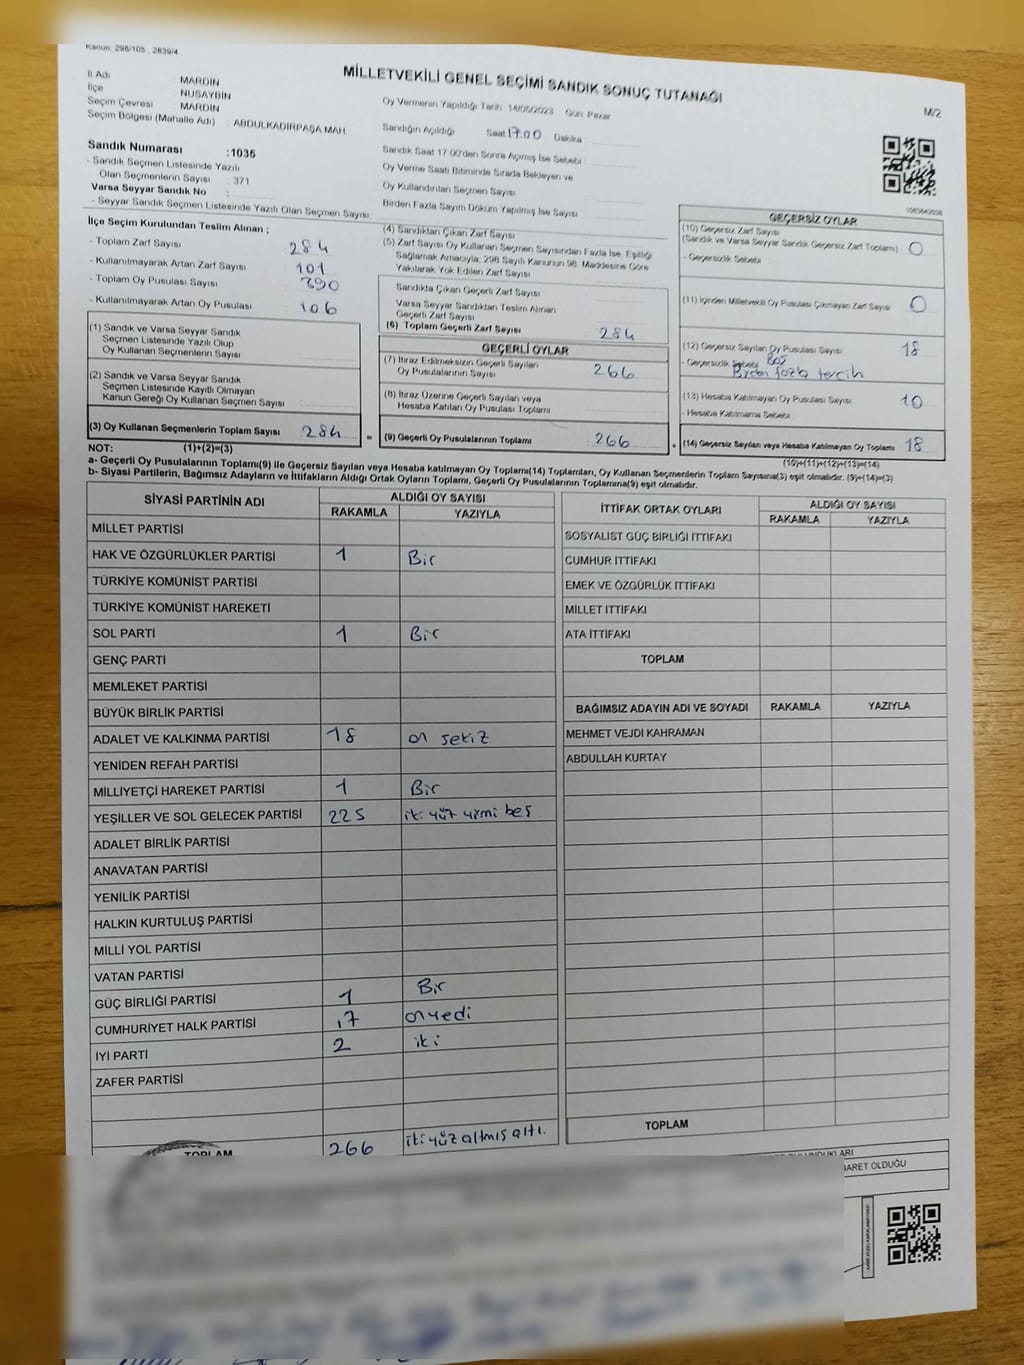 Kanun, 298/105 , 2839/4
MİLLETVEKİLİ GENEL SEÇİMİ SANDIK SONUÇ TUTANAĞI
M/2
İl Adı : MARDİN
İlçe : NUSAYBİN
Seçim Çevresi : MARDİN
Seçim Bölgesi (Mahalle Adı) : ABDULKADİRPAŞA MAH.
Oy Vermenin Yapıldığı Tarih :14/05/2023 Gün: Pazar
Sandığın Açıldığı Saat 17.00 Dakika
Sandık Saat 17:00'den Sonra Açımış İse Sebebi
Oy Verme Saati Bitiminde Sırada Bekleyen ve
Oy Kullandırılan Seçmen Sayısı
Birden Fazla Sayım Döküm Yapılmış İse Sayısı
Sandık Numarası :1035
- Sandık Seçmen Listesinde Yazılı
Olan Seçmenlerin Sayısı : 371
Varsa Seyyar Sandık No :
- Seyyar Sandık Seçmen Listesinde Yazılı Olan Seçmen Sayısı:
İlçe Seçim Kurulundan Teslim Alınan ;
- Toplam Zarf Sayısı 284
- Kullanılmayarak Artan Zarf Sayısı 101
- Toplam Oy Pusulası Sayısı 390
- Kullanılmayarak Artan Oy Pusulası 106
(1) Sandık ve Varsa Seyyar Sandık
Seçmen Listesinde Yazılı Olup
Oy Kullanan Seçmenlerin Sayısı
(2) Sandık ve Varsa Seyyar Sandık
Seçmen Listesinde Kayıtlı Olmayan
Kanun Gereği Oy Kullanan Seçmen Sayısı
(3) Oy Kullanan Seçmenlerin Toplam Sayısı 284
(4) Sandıktan Çıkan Zarf Sayısı
(5) Zarf Sayısı Oy Kullanan Seçmen Sayısından Fazla İse, Eşitliği
Sağlamak Amacıyla, 298 Sayılı Kanunun 98. Maddesine Göre
Yakılarak Yok Edilen Zarf Sayısı
Sandıkta Çıkan Geçerli Zarf Sayısı
Varsa Seyyar Sandıktan Teslim Alınan
Geçerli Zarf Sayısı
(6) Toplam Geçerli Zarf Sayısı 284
GEÇERLİ OYLAR
(7) İtiraz Edilmeksizin Geçerli Sayılan
Oy Pusulalarının Sayısı 266
(8) İtiraz Üzerine Geçerli Sayılan veya
Hesaba Katılan Oy Pusulası Toplamı
= (9) Geçerli Oy Pusulalarının Toplamı 266
GEÇERSİZ OYLAR
(10) Geçersiz Zarf Sayısı
(Sandık ve Varsa Seyyar Sandık Geçersiz Zarf Toplamı) 0
- Geçersizlik Sebebi
(11) İçinden Milletvekili Oy Pusulası Çıkmayan Zarf Sayısı 0
(12) Geçersiz Sayılan Oy Pusulası Sayısı 18
- Geçersizlik Sebebi Boş
Birden fazla tercih
(13) Hesaba Katılmayan Oy Pusulası Sayısı 10
- Hesaba Katılmama Sebebi
+ (14) Geçersiz Sayılan veya Hesaba Katılmayan Oy Toplamı 18
NOT: (1)+(2)=(3)
(10)+(11)+(12)+(13)=(14)
a- Geçerli Oy Pusulalarının Toplamı(9) ile Geçersiz Sayılan veya Hesaba katılmayan Oy Toplamı(14) Toplamları, Oy Kullanan Seçmenlerin Toplam Sayısına(3) eşit olmalıdır. (9)+(14)=(3)
b- Siyasi Partilerin, Bağımsız Adayların ve İttifakların Aldığı Ortak Oyların Toplamı, Geçerli Oy Pusulalarının Toplamına(9) eşit olmalıdır.
SİYASİ PARTİNİN ADI ALDIĞI OY SAYISI
RAKAMLA YAZIYLA
MİLLET PARTİSİ
HAK VE ÖZGÜRLÜKLER PARTİSİ 1 Bir
TÜRKİYE KOMÜNİST PARTİSİ
TÜRKİYE KOMÜNİST HAREKETİ
SOL PARTİ 1 Bir
GENÇ PARTİ
MEMLEKET PARTİSİ
BÜYÜK BİRLİK PARTİSİ
ADALET VE KALKINMA PARTİSİ 18 on sekiz
YENİDEN REFAH PARTİSİ
MİLLİYETÇİ HAREKET PARTİSİ 1 Bir
YEŞİLLER VE SOL GELECEK PARTİSİ 225 iki yüz yirmi beş
ADALET BİRLİK PARTİSİ
ANAVATAN PARTİSİ
YENİLİK PARTİSİ
HALKIN KURTULUŞ PARTİSİ
MİLLİ YOL PARTİSİ
VATAN PARTİSİ
GÜÇ BİRLİĞİ PARTİSİ 1 Bir
CUMHURİYET HALK PARTİSİ 17 onyedi
İYİ PARTİ 2 iki
ZAFER PARTİSİ
TOPLAM 266 iki yüz altmış altı.
İTTİFAK ORTAK OYLARI ALDIĞI OY SAYISI
RAKAMLA YAZIYLA
SOSYALİST GÜÇ BİRLİĞİ İTTİFAKI
CUMHUR İTTİFAKI
EMEK VE ÖZGÜRLÜK İTTİFAKI
MİLLET İTTİFAKI
ATA İTTİFAKI
TOPLAM
BAĞIMSIZ ADAYIN ADI VE SOYADI RAKAMLA YAZIYLA
MEHMET VEJDİ KAHRAMAN
ABDULLAH KURTAY
TOPLAM
BARET OLDUĞU